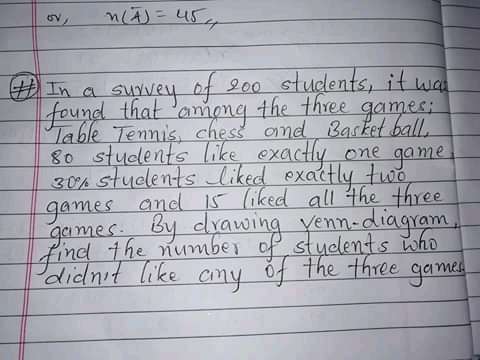 or, n(A̅) = 45,,
# In a survey of 200 students, it was
found that among the three games;
Table Tennis, chess and Basket ball,
80 students like exactly one game,
30% students liked exactly two
games and 15 liked all the three
games. By drawing venn-diagram,
find the number of students who
didn't like any of the three games.